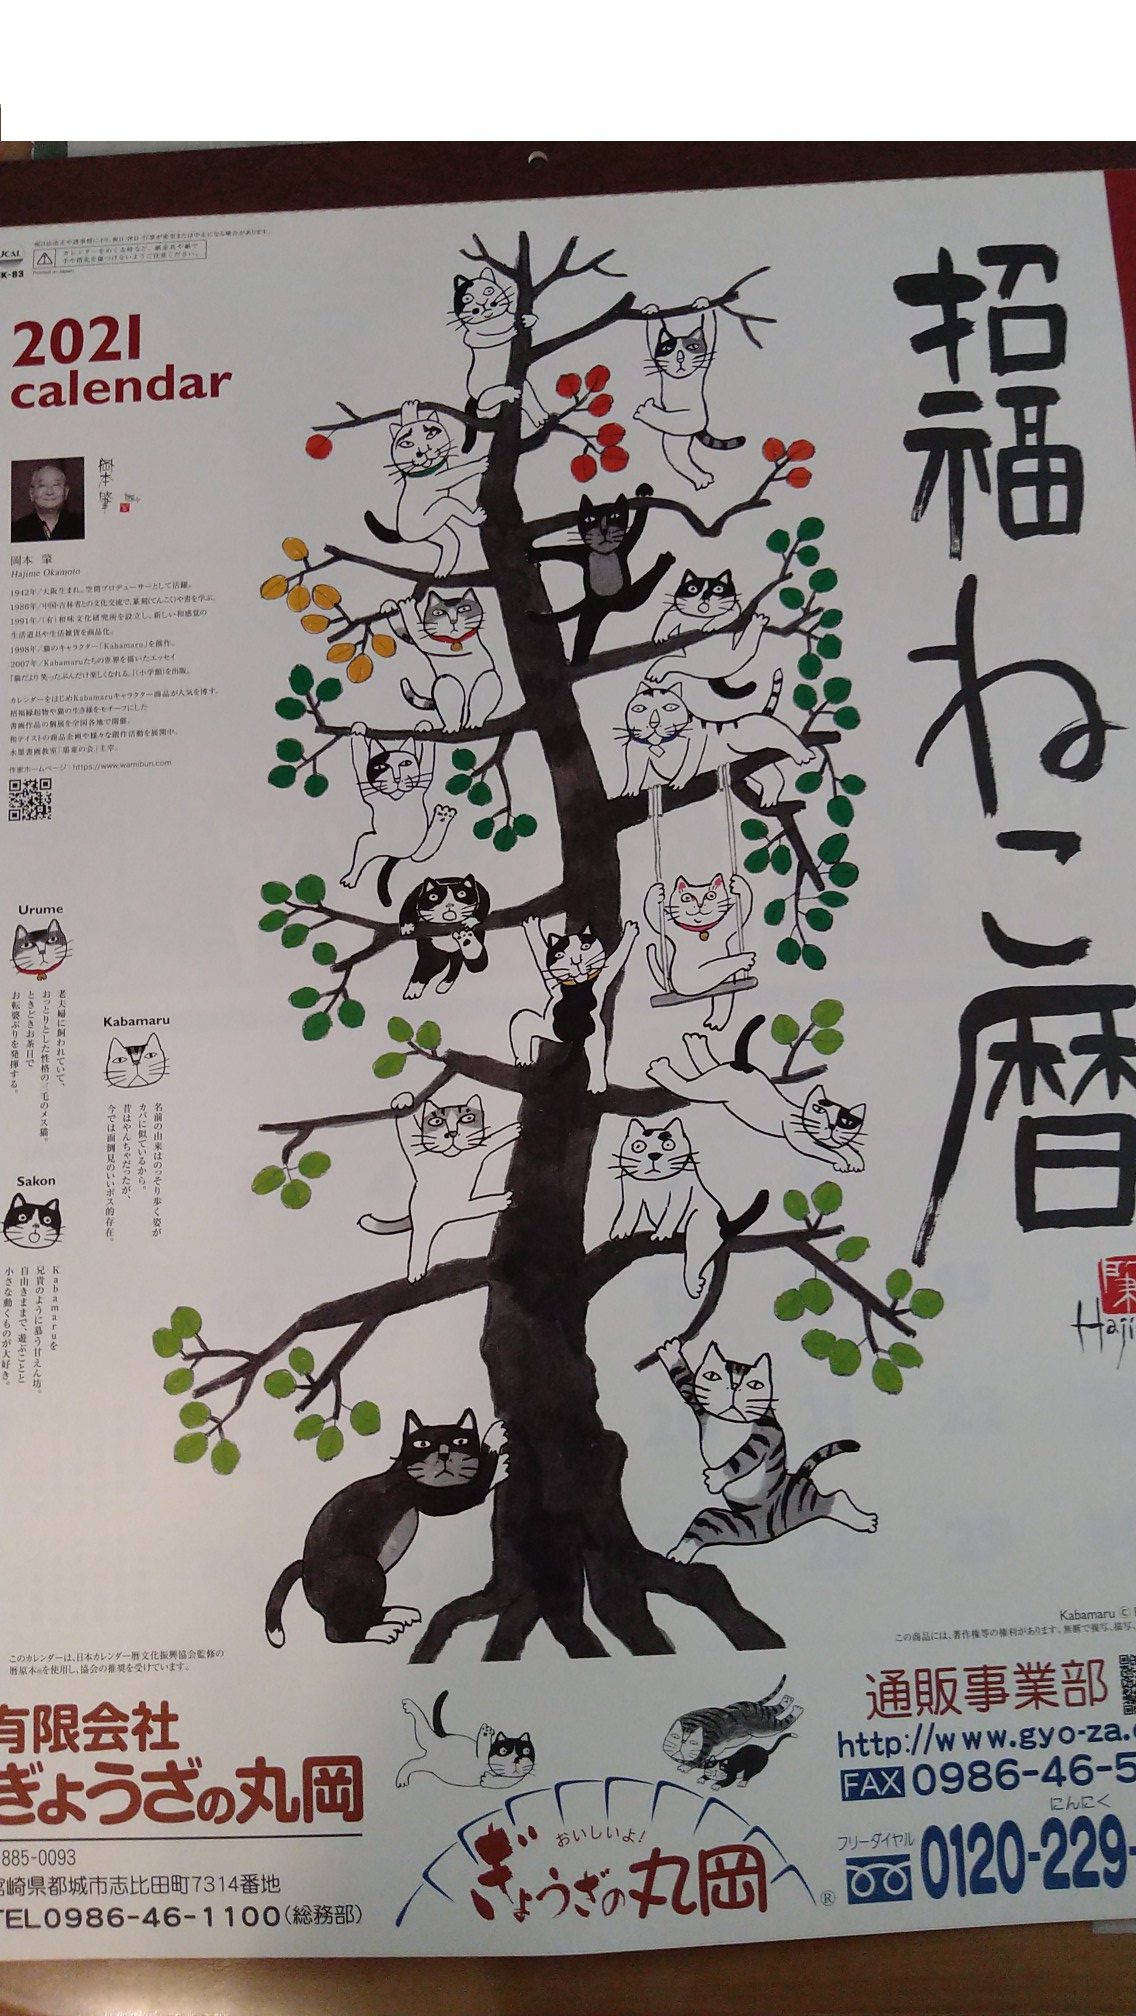 祝日法改正や諸事情により、祝日・休日・行事が変更または中止になる場合があります。
カレンダーをめくる時など、紙金具や紙で
手や指先を傷つけないようご注意ください。
K-83
Printed in Japan
2021
calendar
招福ねこ暦
岡本 肇
岡本 肇
Hajime Okamoto
1942年/大阪生まれ。空間プロデューサーとして活躍。
1986年/中国・吉林省との文化交流で、篆刻(てんこく)や書を学ぶ。
1991年/(有)和味文化研究所を設立し、新しい和感覚の
生活道具や生活雑貨を商品化。
1998年/猫のキャラクター「Kabamaru」を創作。
2007年/Kabamaruたちの世界を描いたエッセイ
「猫だより 笑ったぶんだけ楽しくなれる。」(小学館)を出版。
カレンダーをはじめKabamaruキャラクター商品が人気を博す。
招福縁起物や猫の生き様をモチーフにした
書画作品の個展を全国各地で開催。
和テイストの商品企画や様々な創作活動を展開中。
水墨書画教室「墨童の会」主宰。
作家ホームページ:https://www.wamibun.com
Urume
老夫婦に飼われていて、
おっとりとした性格の三毛のメス猫。
ときどきお茶目で
お転婆ぶりを発揮する。
Kabamaru
名前の由来はのっそり歩く姿が
カバに似ているから。
昔はやんちゃだったが、
今では面倒見のいいボス的存在。
Sakon
Kabamaruを
兄貴のように慕う甘えん坊。
自由きままで、遊ぶことと
小さな動くものが大好き。
Haji
Kabamaru ©
この商品には、著作権等の権利があります。無断で複写、描写、
このカレンダーは、日本カレンダー暦文化振興協会監修の
暦原本®を使用し、協会の推奨を受けています。
有限会社
ぎょうざの丸岡
885-0093
宮崎県都城市志比田町7314番地
TEL0986-46-1100(総務部)
おいしいよ!
ぎょうざの丸岡
®
通販事業部
http://www.gyo-za.
FAX 0986-46-5
にんにく
フリーダイヤル
0120-229-